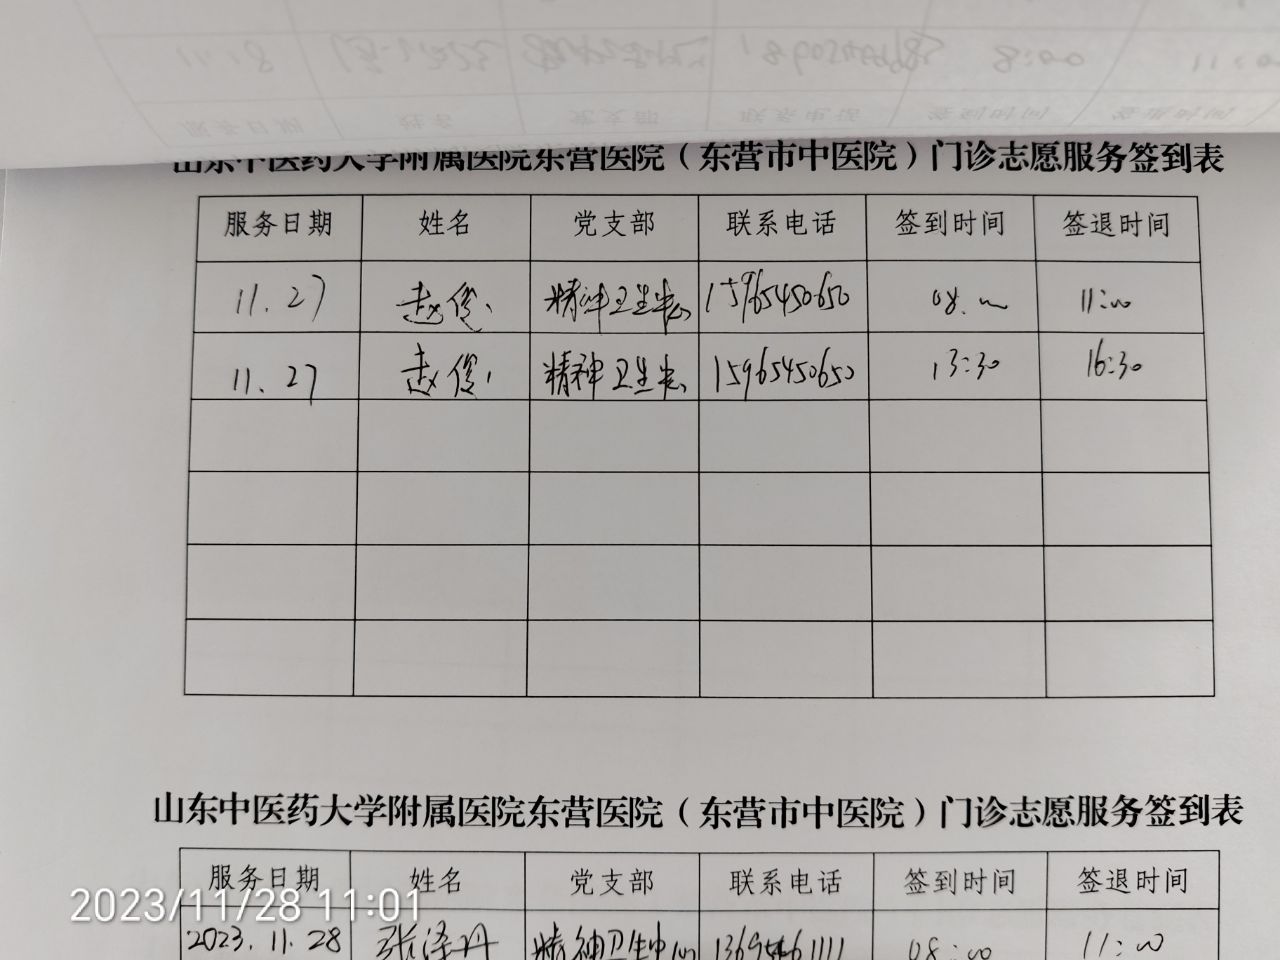 山东中医药大学附属医院东营医院（东营市中医院）门诊志愿服务签到表
服务日期 姓名 党支部 联系电话 签到时间 签退时间
11.27 赵俊 精神卫生 15965450650 08. 11:00
11.27 赵俊 精神卫生 15965450650 13:30 16:30
山东中医药大学附属医院东营医院（东营市中医院）门诊志愿服务签到表
服务日期 姓名 党支部 联系电话 签到时间 签退时间
2023/11/28 11:01
2023.11.28 张泽丹 精神卫生中心 08:00 11:00